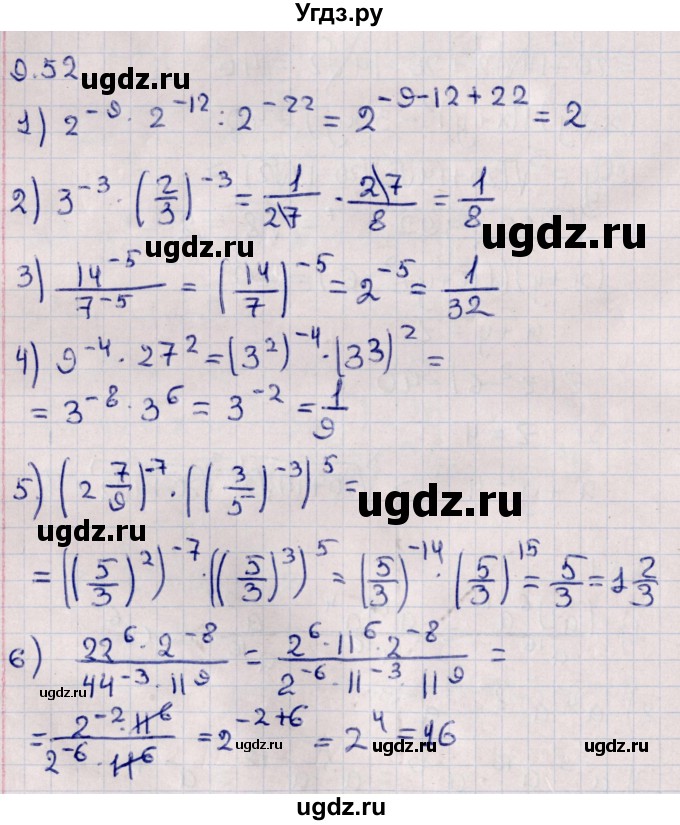 Угдз.ру
9.52
ugdz.ru
1) 2^{-9} · 2^{-12} : 2^{-22} = 2^{-9-12+22} = 2
2) 3^{-3} · (2/3)^{-3} = 1/27 · 27/8 = 1/8
ugdz.ru
ugdz.ru
3) 14^{-5}/7^{-5} = (14/7)^{-5} = 2^{-5} = 1/32
4) 9^{-4} · 27^2 = (3^2)^{-4} · (3^3)^2 =
= 3^{-8} · 3^6 = 3^{-2} = 1/9
5) (2 7/9)^{-7} · ((3/5)^{-3})^5 =
ugdz.ru
ugdz.ru
= ((5/3)^2)^{-7} · ((5/3)^3)^5 = (5/3)^{-14} · (5/3)^{15} = 5/3 = 1 2/3
ugdz.ru
6) 22^6 · 2^{-8}/44^{-3} · 11^9 = 2^6 · 11^6 · 2^{-8}/2^{-6} · 11^{-3} · 11^9 =
ugdz.ru
ugdz.ru
= 2^{-2} · 11^6/2^{-6} · 11^6 = 2^{-2+6} = 2^4 = 16
ugdz.ru
ugdz.ru
ugdz.ru